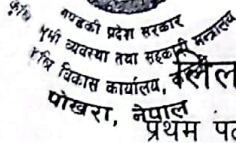 गण्डकी प्रदेश सरकार
कृषि भूमी व्यवस्था तथा सहकारी मन्त्रालय
कृषि विकास कार्यालय,
पोखरा, नेपाल
प्रथम